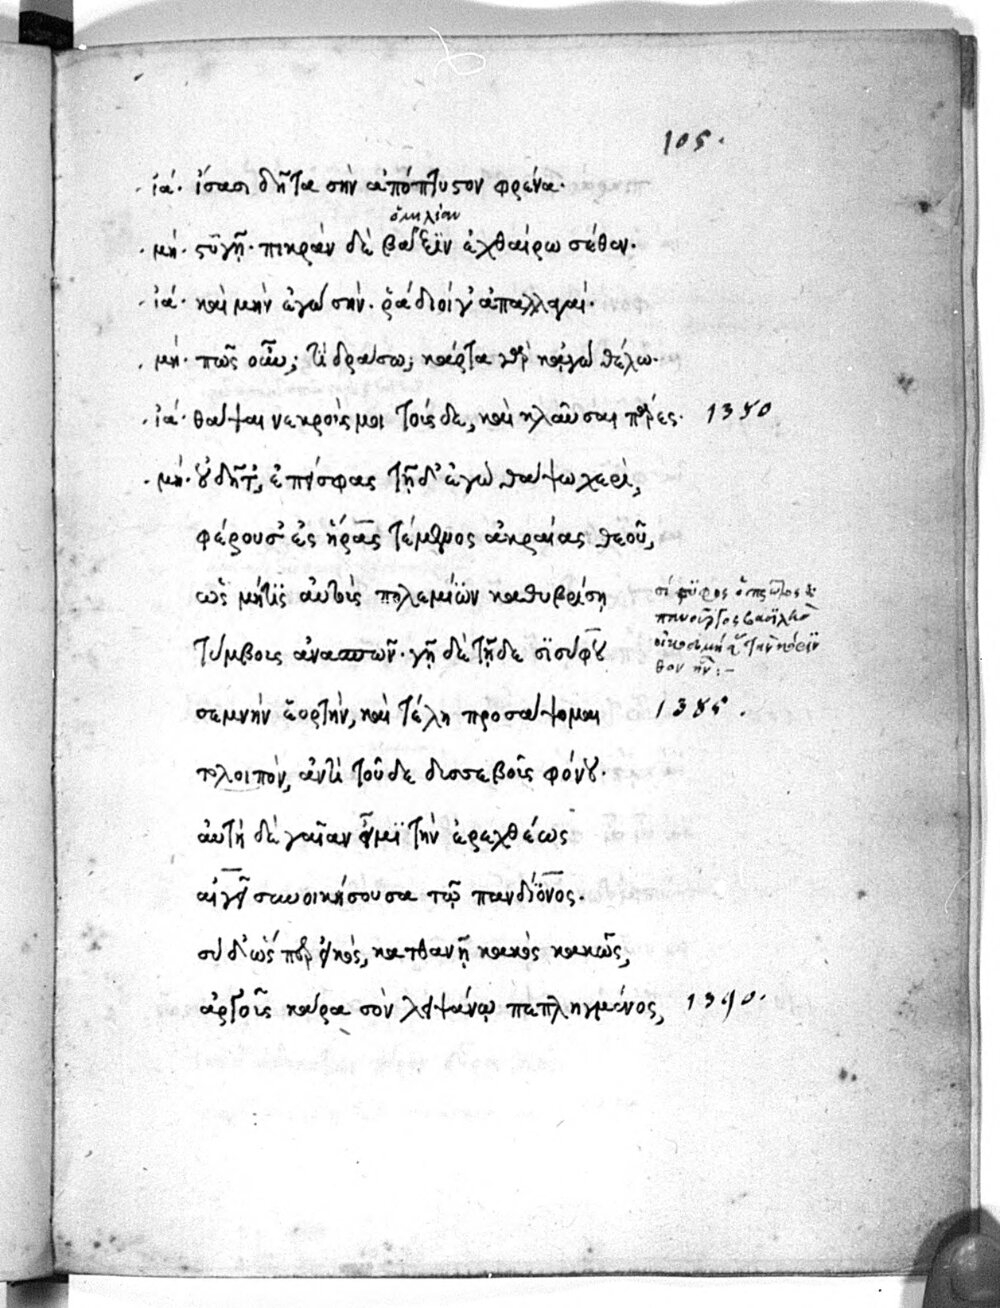 105.
ἰά· ἴσασι δῆτα σὴν ἀπόπτυστον φρένα·
ὁμιλίαν
μή· στύγη· πικρὰν δὲ βάξιν ἐχθαίρω σέθεν·
ἰά· καὶ μὴν ἐγὼ σήν· ῥάδιοί γ' ἀπαλλαγαί·
μή· πῶς οὖν; τί δράσω; κάρτα γὰρ κἀγὼ θέλω·
ἰά· θάψαι νεκρούς μοι τούσδε, καὶ κλαῦσαι πάρες· 1380
μή· οὐ δῆτ', ἐπεί σφας τῇδ' ἐγὼ θάψω χερί,
φέρουσ' ἐς ἥρας τέμενος ἀκραίας θεοῦ,
ὡς μήτις αὐτοὺς πολεμίων καθυβρίσῃ
τύμβοις ἀνασπῶν· γῇ δὲ τῇδε σισύφου
σεμνὴν ἑορτὴν, καὶ τέλη προσάψομαι 1385.
τολοιπόν, ἀντὶ τοῦδε δυσσεβοῦς φόνου·
αὐτὴ δὲ γαῖαν εἶμι τὴν ἐρεχθέως
αἰγεῖ συνοικήσουσα τῷ πανδίονος·
σὺ δ' ὥσπερ εἰκός, κατθανῇ κακὸς κακῶς,
ἀργοῦς κάρα σὸν λειψάνῳ πεπληγμένος, 1390.